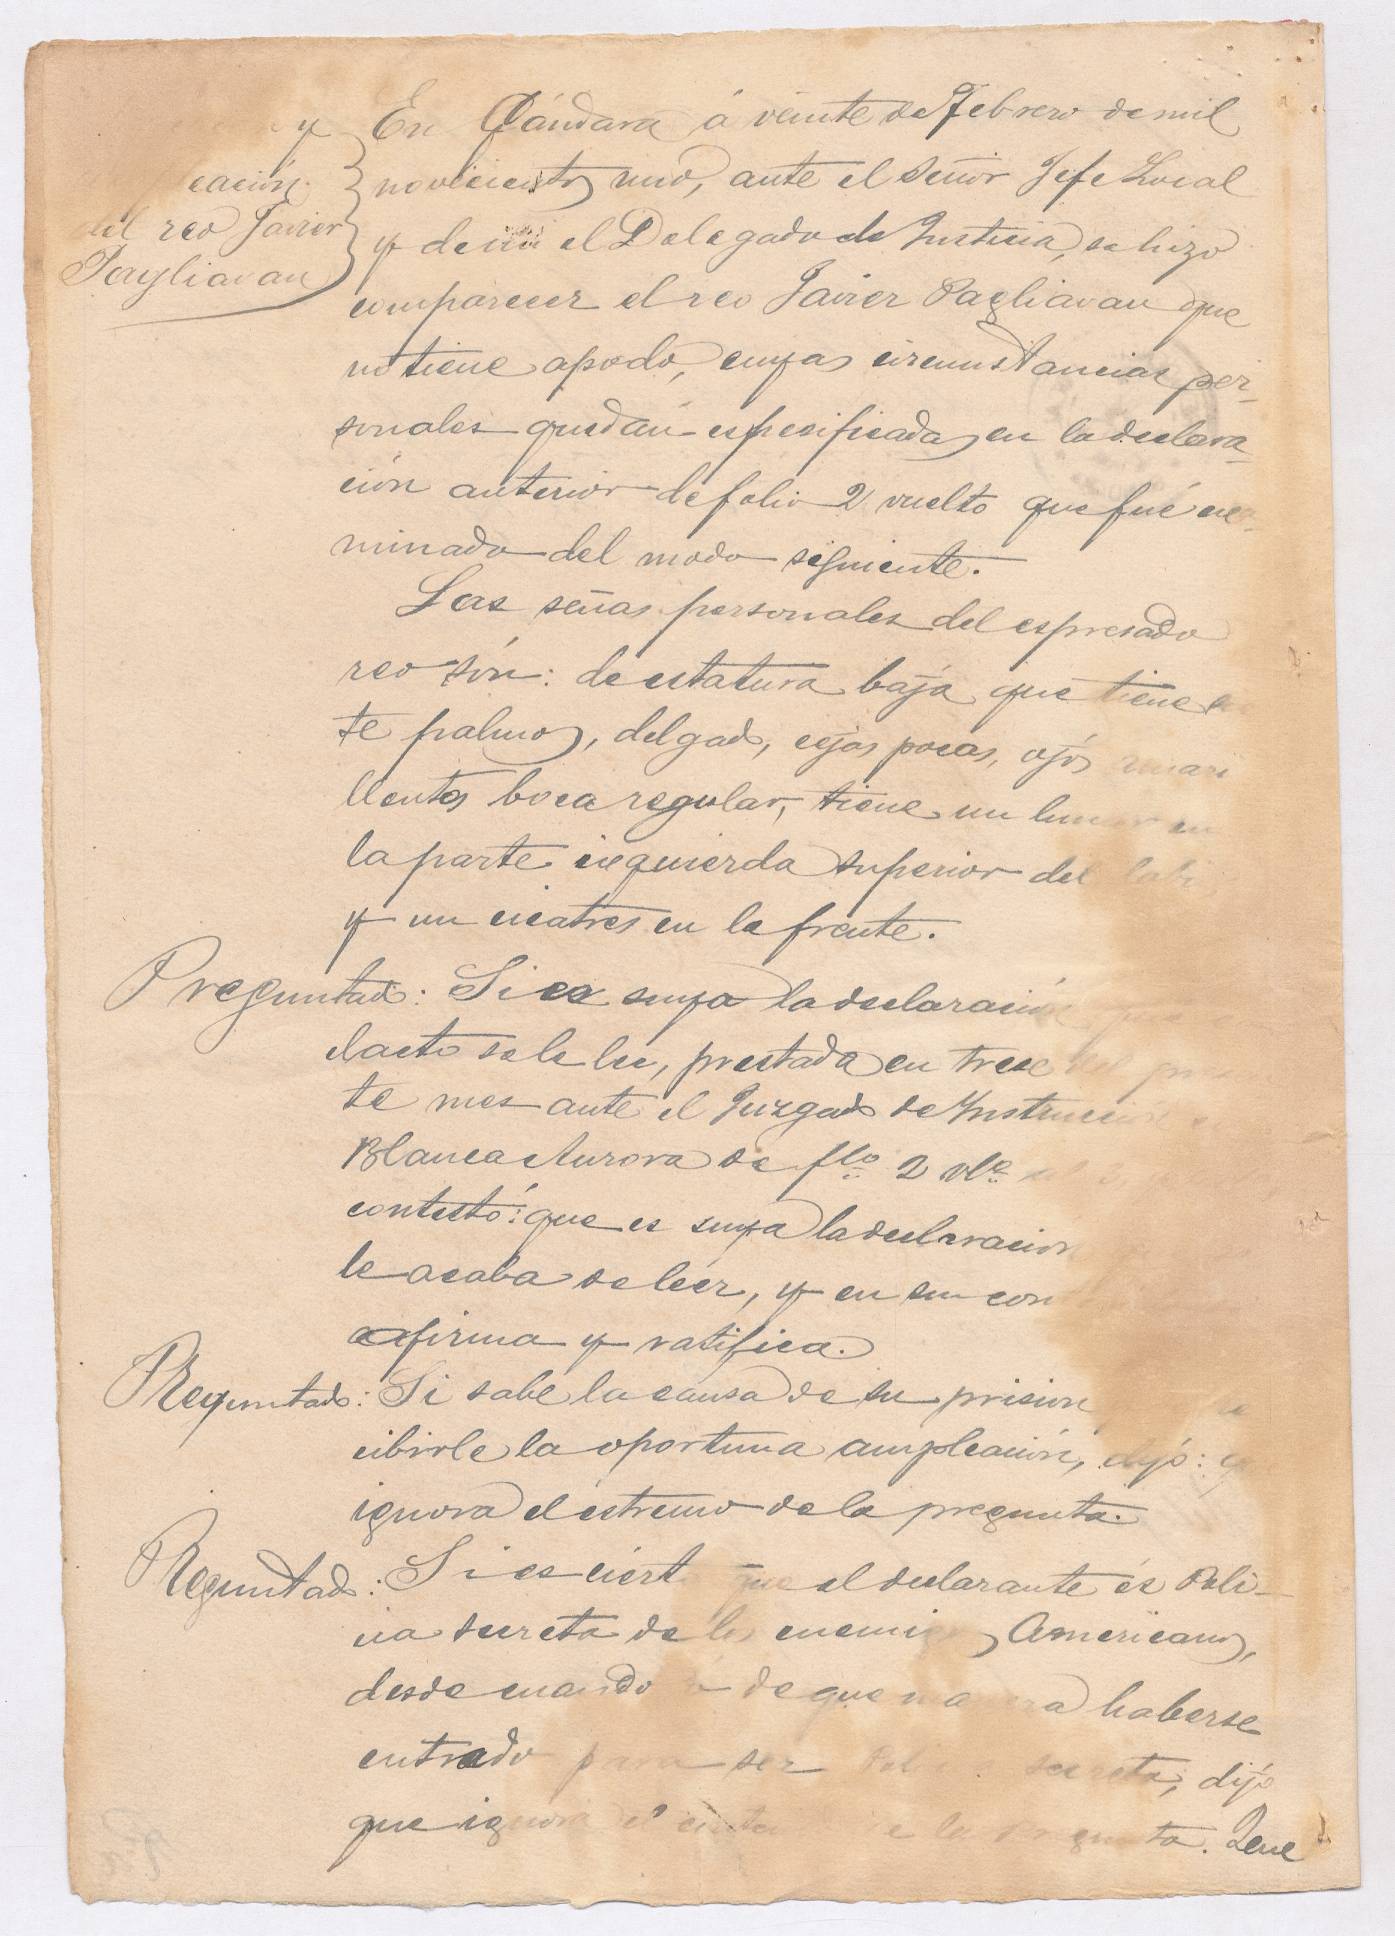 y
cación
del reo Javier
Pagliavan
En Gándara á veinte de Febrero de mil
novecientos uno, ante el Señor Jefe Local
y de mi el Delegado de Justicia, se hizo
comparecer el reo Javier Pagliavan que
no tiene apodo, cuyas circunstancias per-
sonales quedan espesificadas en la declara-
ción anterior de folio 2 vuelto que fué exa-
minado del modo siguiente.
Las señas personales del espresado
reo són: de estatura baja que tiene
te palmos, delgado, cejas pocas, ojos amari
llentos boca regular, tiene un lunar en
la parte izquierda superior del labi
y un cicatres en la frente.
Preguntado: Si es suya la declaración que
elacto se le lee, prestada en trese del presen
te mes ante el Juzgado de Instruccion
Blanca Aurora de flo 2 vlto
contestó: que es suya la declaracion
le acaba de léer, y en su con
afirma y ratifica.
Preguntado: Si sabe la causa de su prision
cibirle la oportuna ampleación, dijó: que
ignora el estremo de la pregunta.
Preguntado: Si es cierto que el declarante és Poli-
cia secreta de los enemigos Americanos,
desde cuando ó de que manera haberse
entrado para ser Policia secreta, dijo
que ignora el contenido de la pregunta. Leve